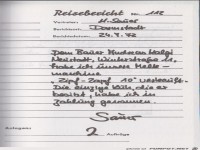 Reisebericht Nr. 112
Vertreter: H. Sauer
Berichtsort: Darmstadt
Berichtsdatum: 24.9.72
Dem Bauer
Neustadt, Winterstraße 11,
habe ich unsere Melk-
maschine
- Zipf - Zapf 10" verkauft.
Die einzige Kuh, die er
besitzt, habe ich in
Zahlung genommen.
Sauer
Anlagen:
2 Aufträge